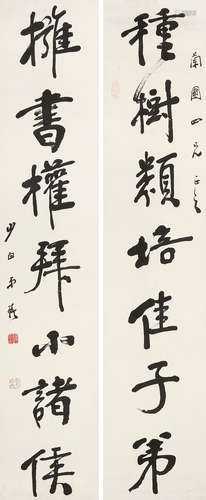 蘭圃四兄正之
種樹類培佳子弟
擁書權拜小諸侯